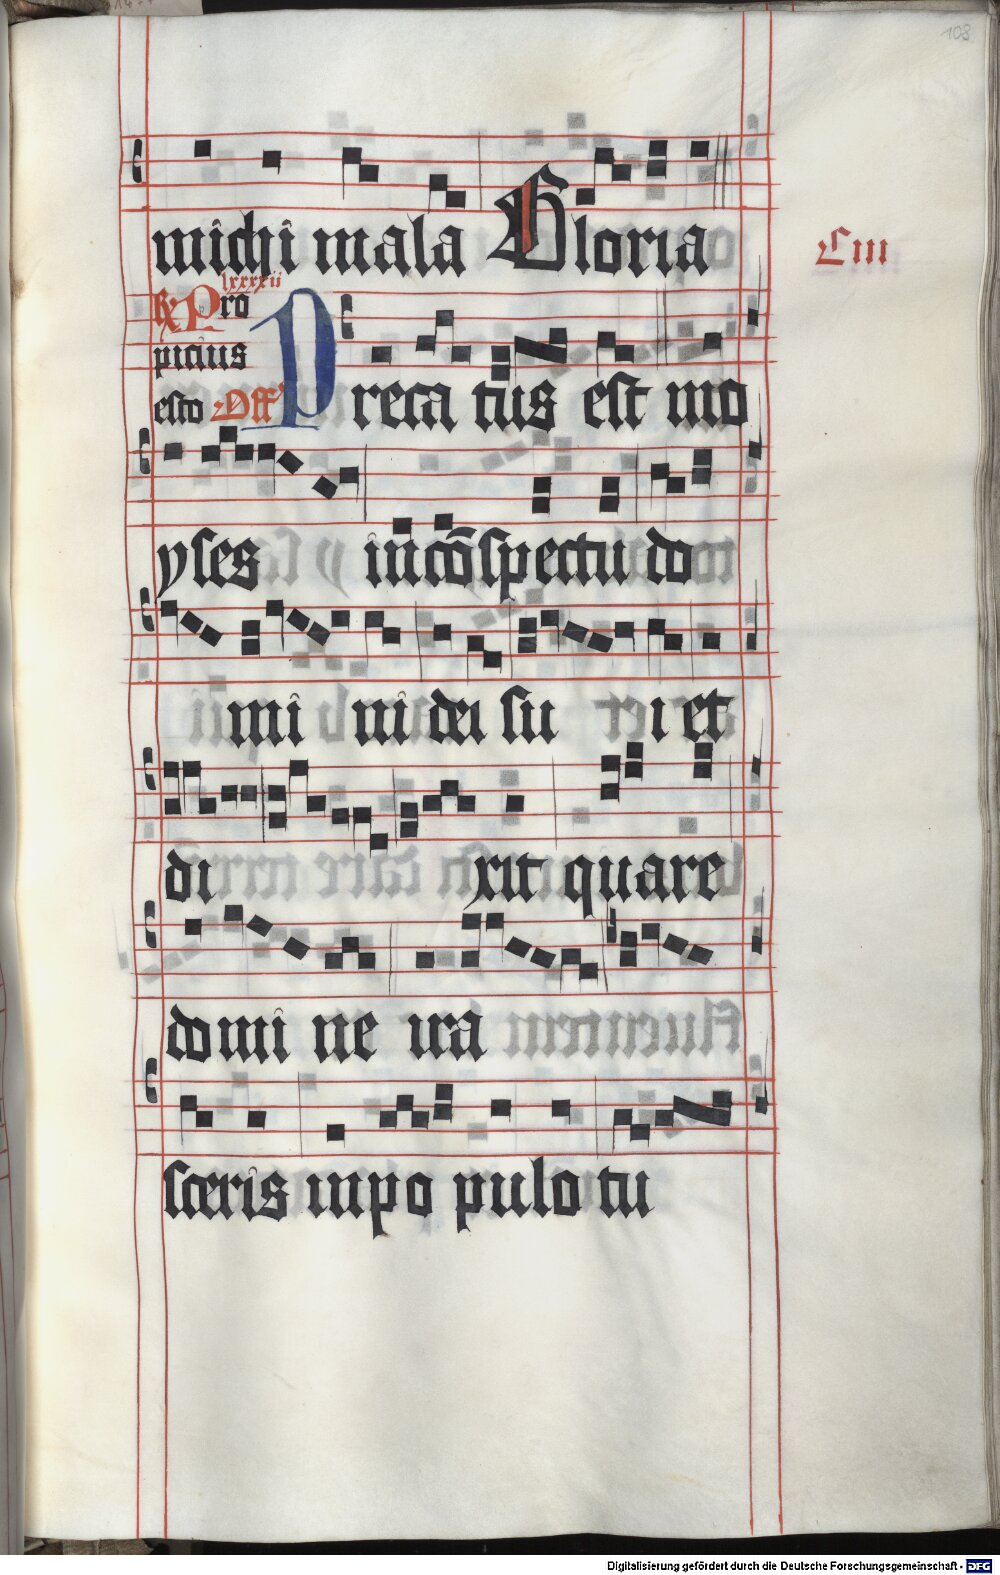 108
michi mala Gloria
Ciii
lxxxxii
R Pro
picius
esto Off
Preca tus est mo
yses in cōspectu do
mi ni dei su i et
di xit quare
domi ne ira
sceris in po pulo tu
Digitalisierung gefördert durch die Deutsche Forschungsgemeinschaft - DFG